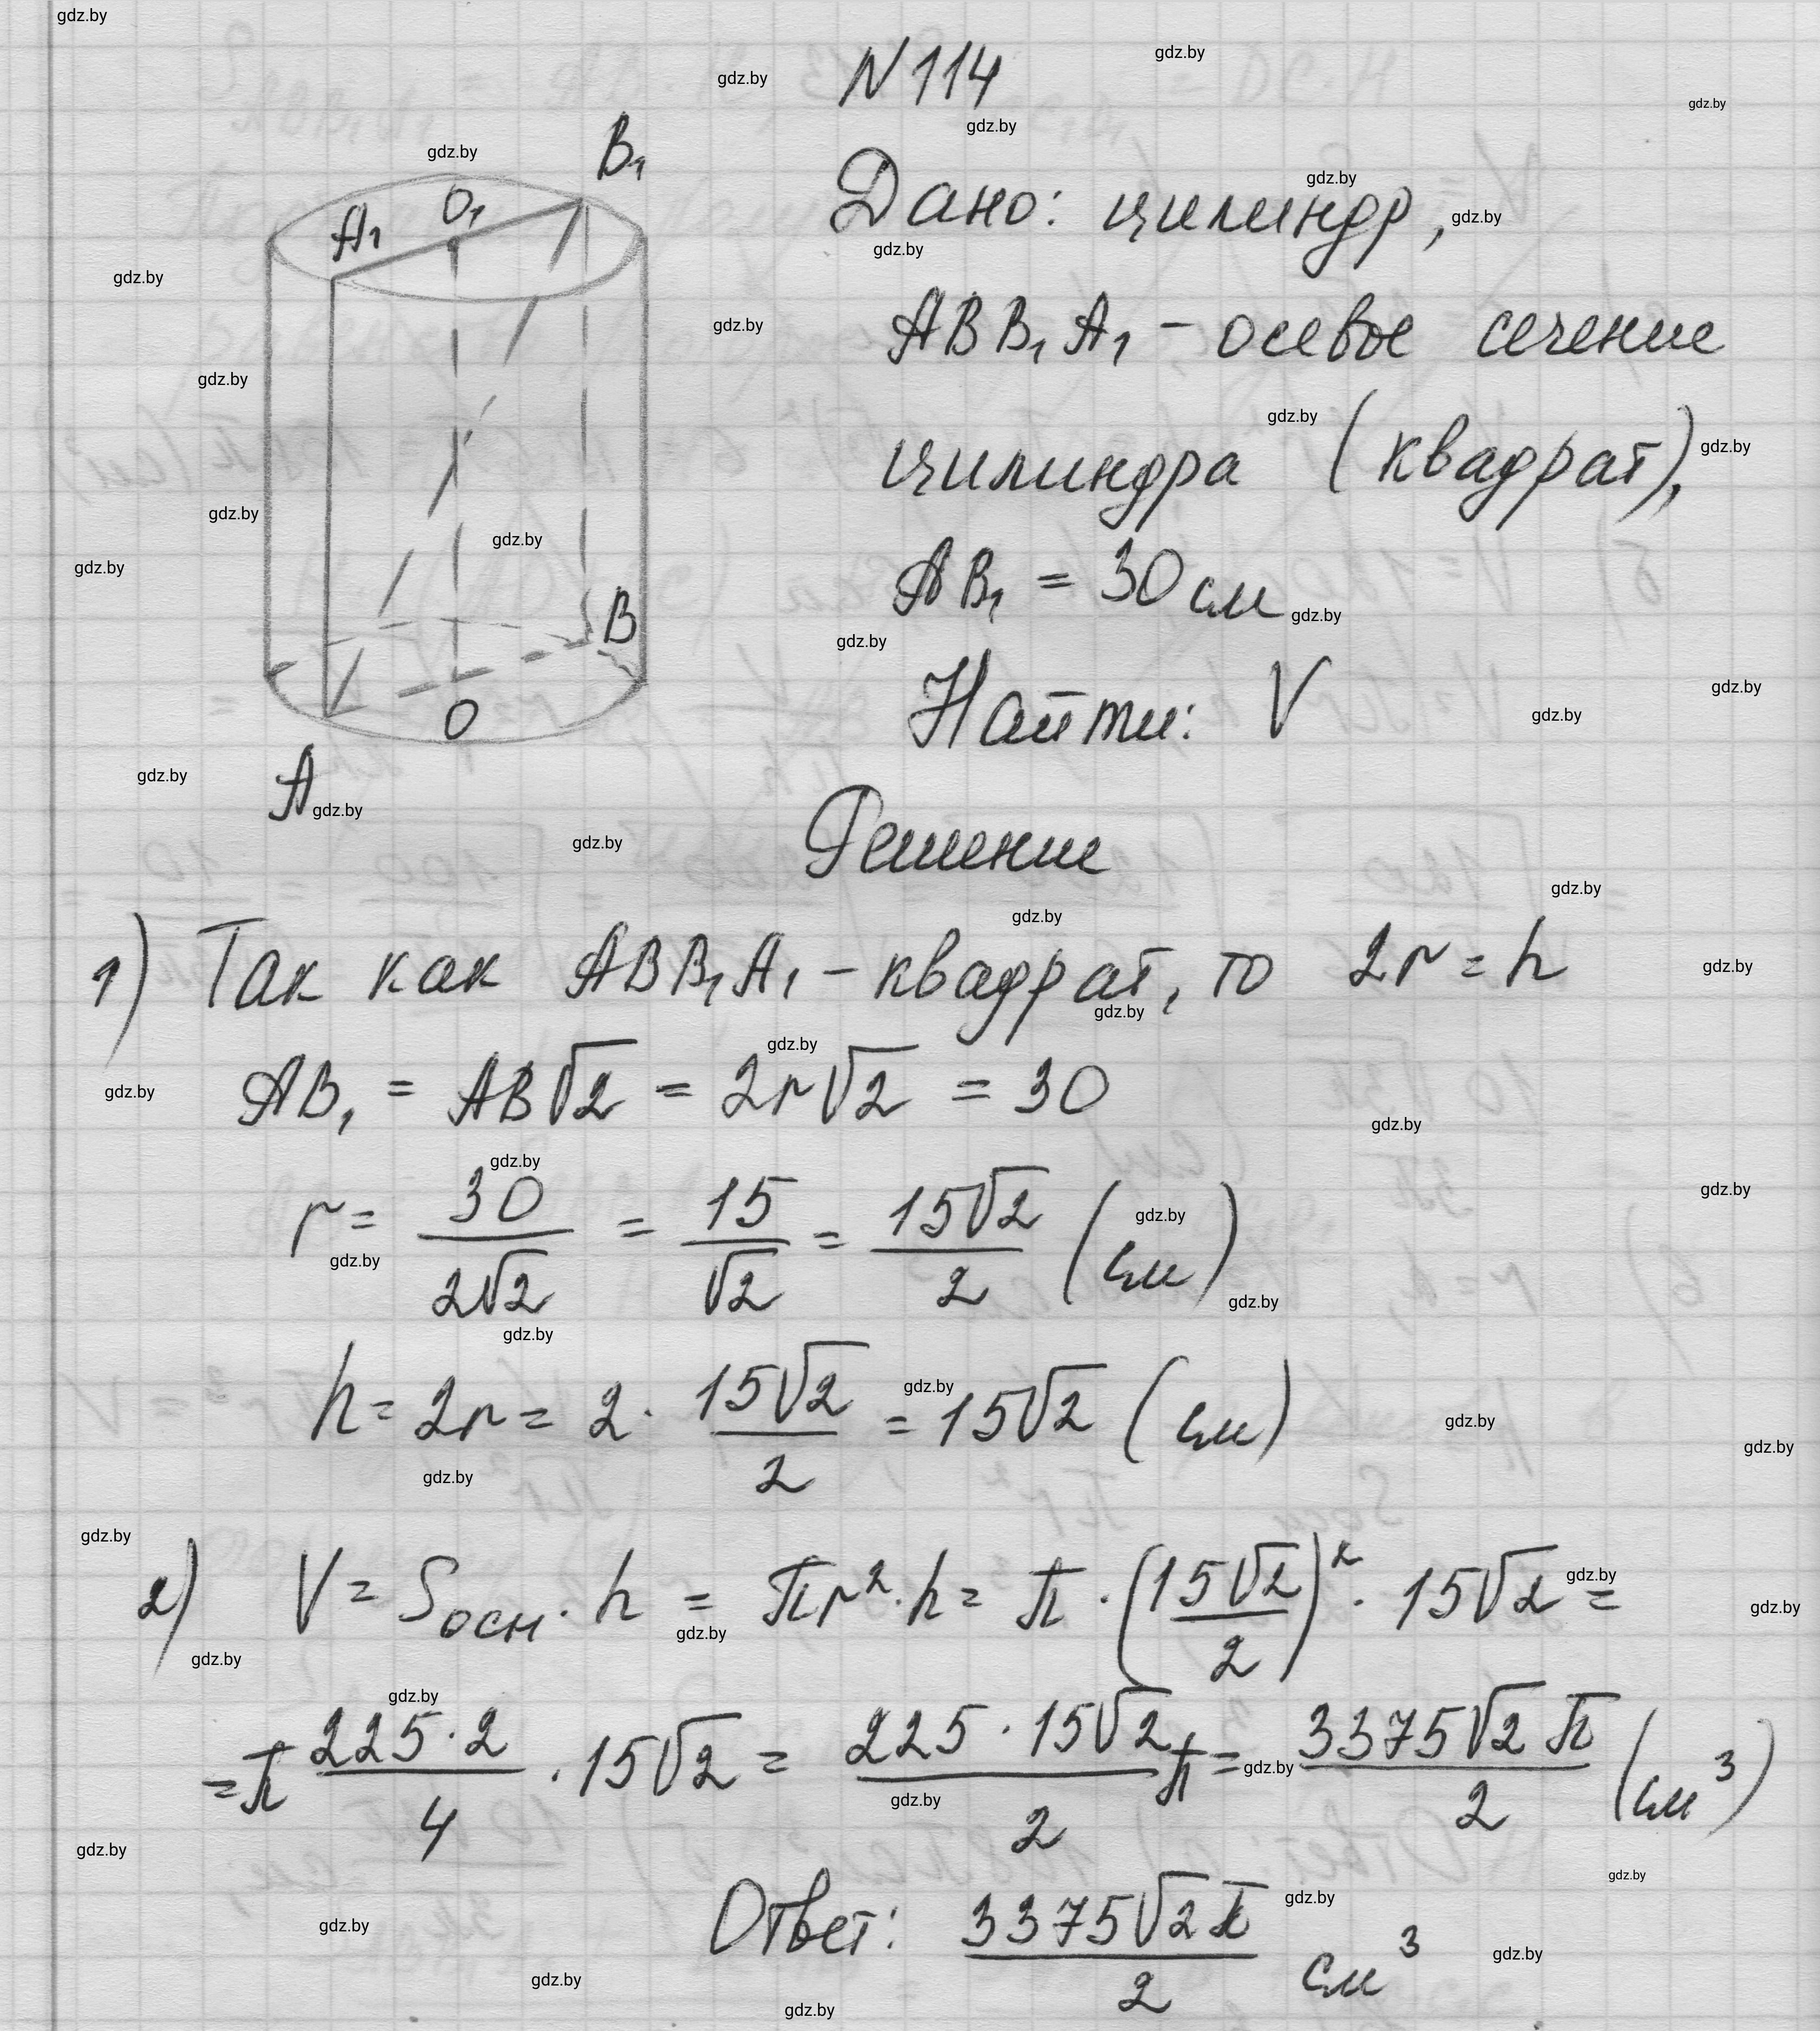 N 114
Дано: цилиндр,
ABB₁A₁ - осевое сечение
цилиндра (квадрат),
AB₁ = 30 см
Найти: V
B₁
O₁
A₁
B
O
A
Решение
1) Так как ABB₁A₁ - квадрат, то 2r = h
AB₁ = AB√2 = 2r√2 = 30
r = 30/2√2 = 15/√2 = 15√2/2 (см)
h = 2r = 2 · 15√2/2 = 15√2 (см)
2) V = Sосн · h = πr² · h = π · (15√2/2)² · 15√2 =
= π 225·2/4 · 15√2 = 225·15√2/2 π = 3375√2 π/2 (см³)
Ответ: 3375√2 π/2 см³
gdz.by